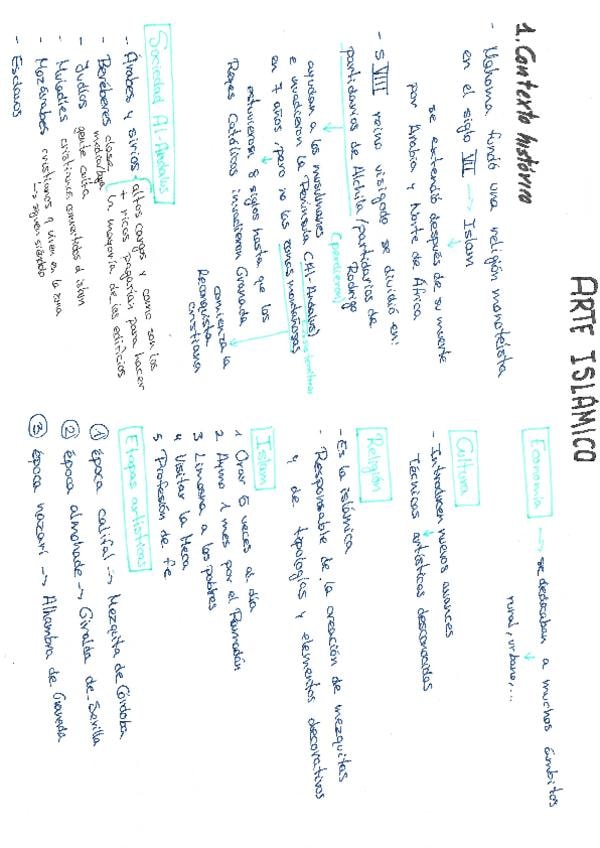 ARTE ISLÁMICO
1. Contexto histórico
- Mahoma fundó una religión monoteísta
en el siglo VII → Islam
↓
se extendió después de su muerte
por Arabia y Norte de África
- S VIII reino visigodo se dividió en:
partidarios de Akhila / partidarios de
Rodrigo
(perdieron)
ayudan a los musulmanes
e invadieron la Península (Al-Andalus)
en 7 años, pero no las zonas montañosas
estuvieron 8 siglos hasta que los
Reyes Católicos invadieron Granada
comienza la
Reconquista
cristiana
Sociedad Al-Andalus
- Árabes y sirios altos cargos y como son los
+ ricos pagarían para hacer
la mayoría de los edificios
- Beréberes clase
media/baja
- Judíos
gente culta
- Muladíes cristianos convertidos al islam
- Mozárabes cristianos q viven en la zona
→ siguen siéndolo
- Esclavos
Economía → se dedicaban a muchos ámbitos
↓
rural, urbano, ...
Cultura
- Introducen nuevos avances
↓
Técnicas artísticas desconocidas
Religión
- Es la islámica
- Responsable de la creación de mezquitas
y de tipologías y elementos decorativos
Islam
1 Orar 5 veces al día
2 Ayuno 1 mes por el Ramadán
3 Limosna a los pobres
4 Visitar la Meca
5 Profesión de fe
Etapas artísticas
① época califal → Mezquita de Córdoba
② época almohade → Giralda de Sevilla
③ época nazarí → Alhambra de Granada